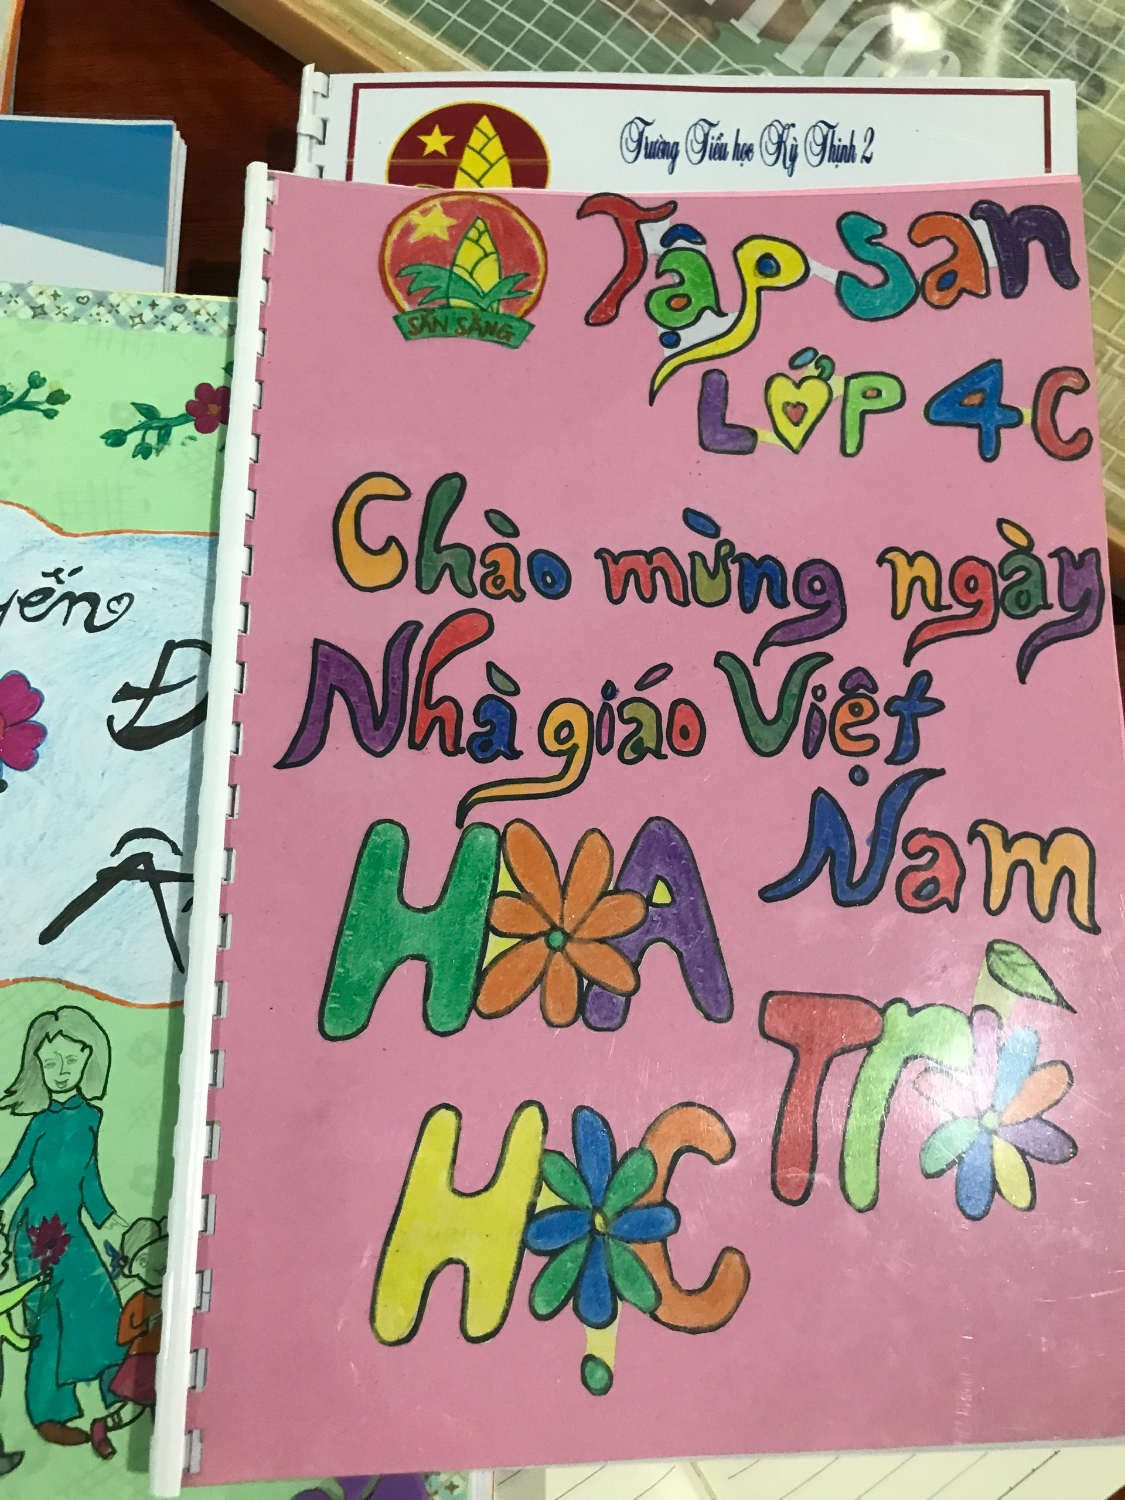 Trường Tiểu học Kỳ Thịnh 2
SẴN SÀNG
Tập san
LỚP 4C
Chào mừng ngày
Nhà giáo Việt
Nam
HOA
TRÒ
HỌC